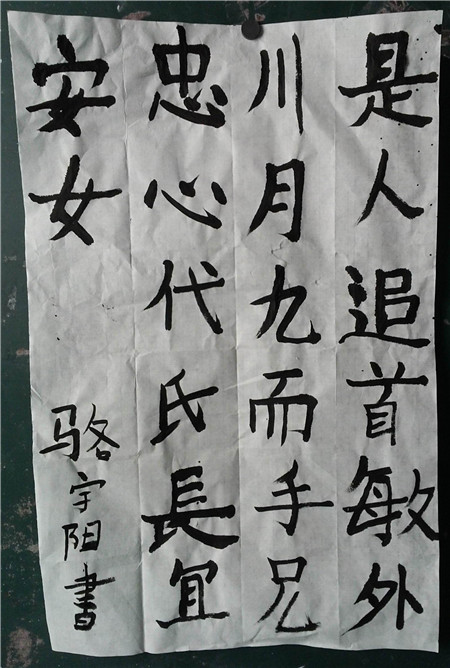 是人追首敏外
川月九而手兄
忠心代氏長宜
安女
骆宇阳書